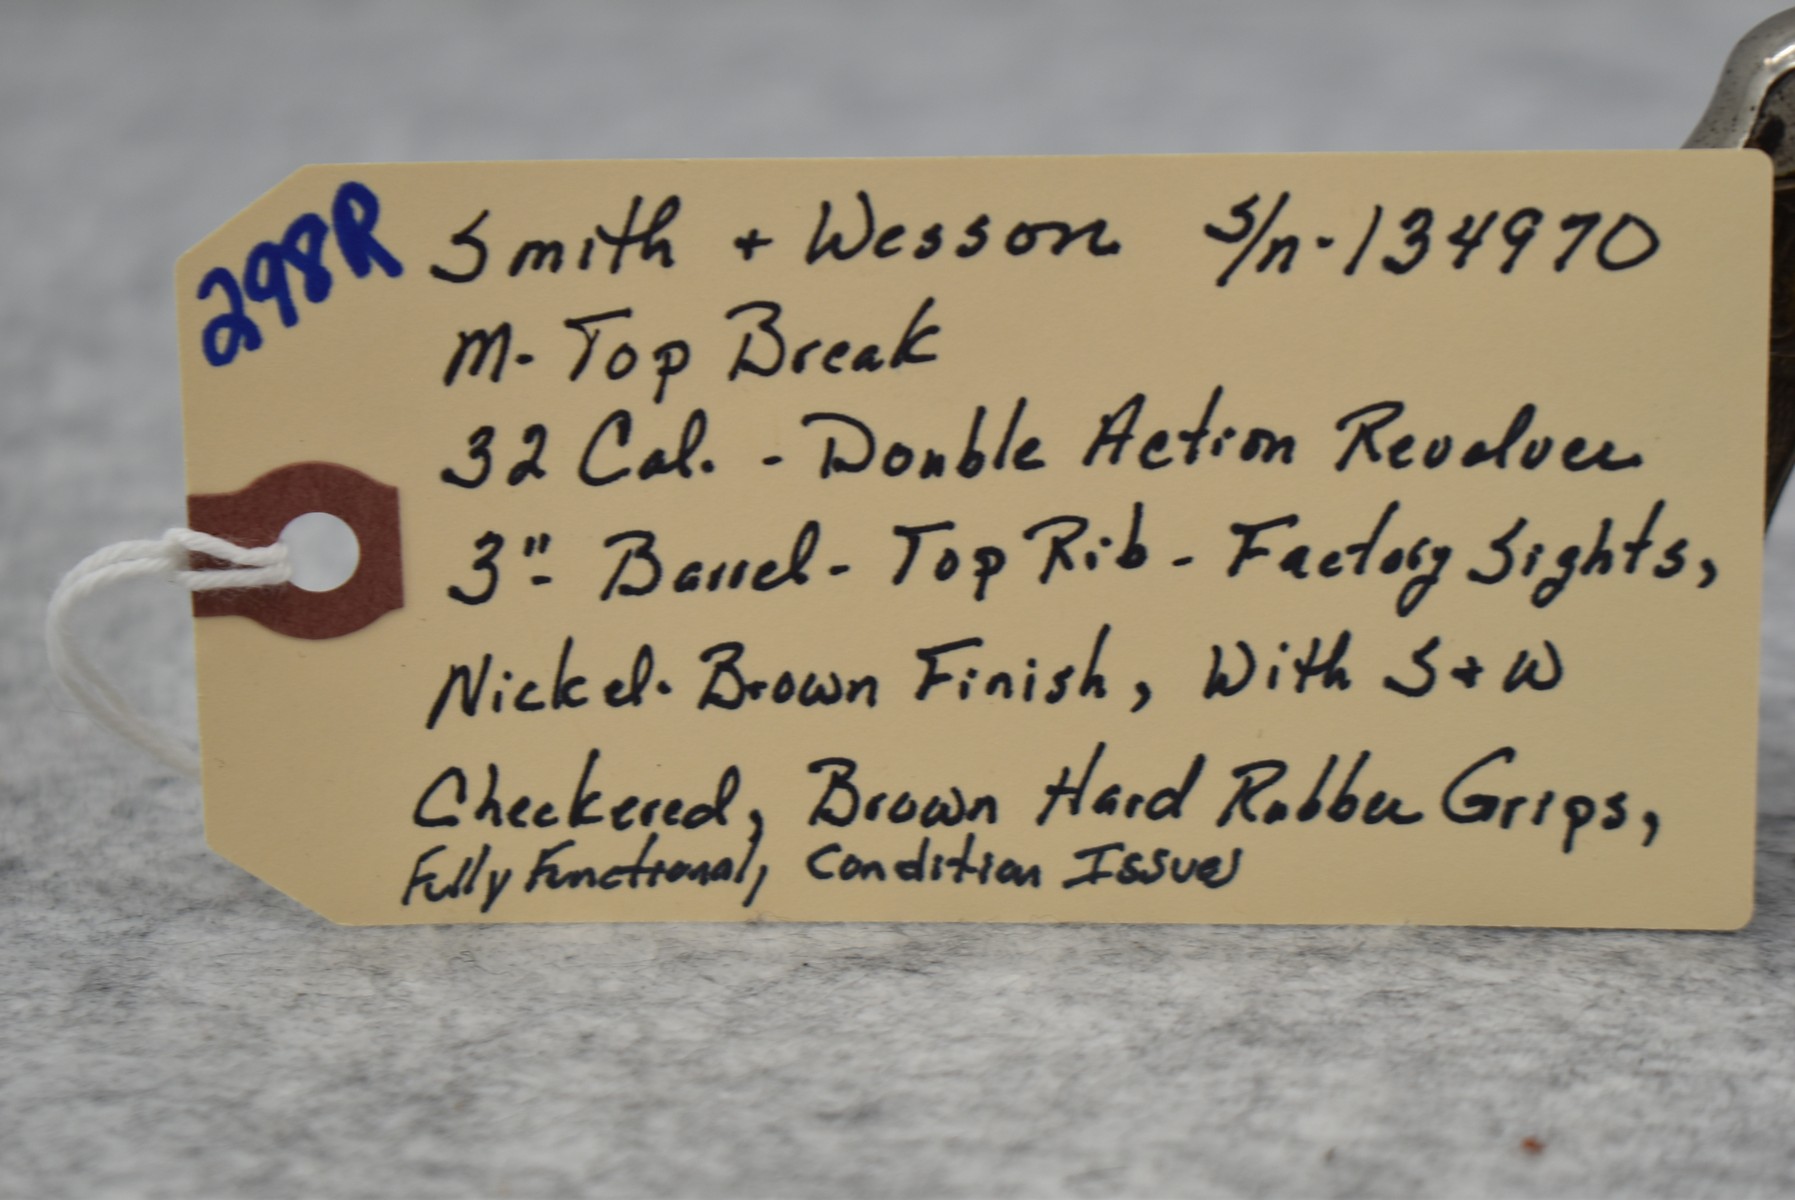 298R
Smith + Wesson S/n-134970
M- Top Break
32 Cal. - Double Action Revolver
3"- Barrel - Top Rib - Factory Sights,
Nickel- Brown Finish, With S + W
Checkered, Brown Hard Rubber Grips,
Fully Functional, Condition Issues